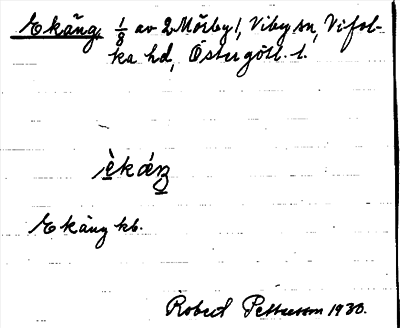 Ekäng, 1/8 av 2 Mörby, Viby sn, Vifol-
ka hd, Östergötl. l.
èkáŋ
Ekäng kb.
Robert Pettersson 1930.